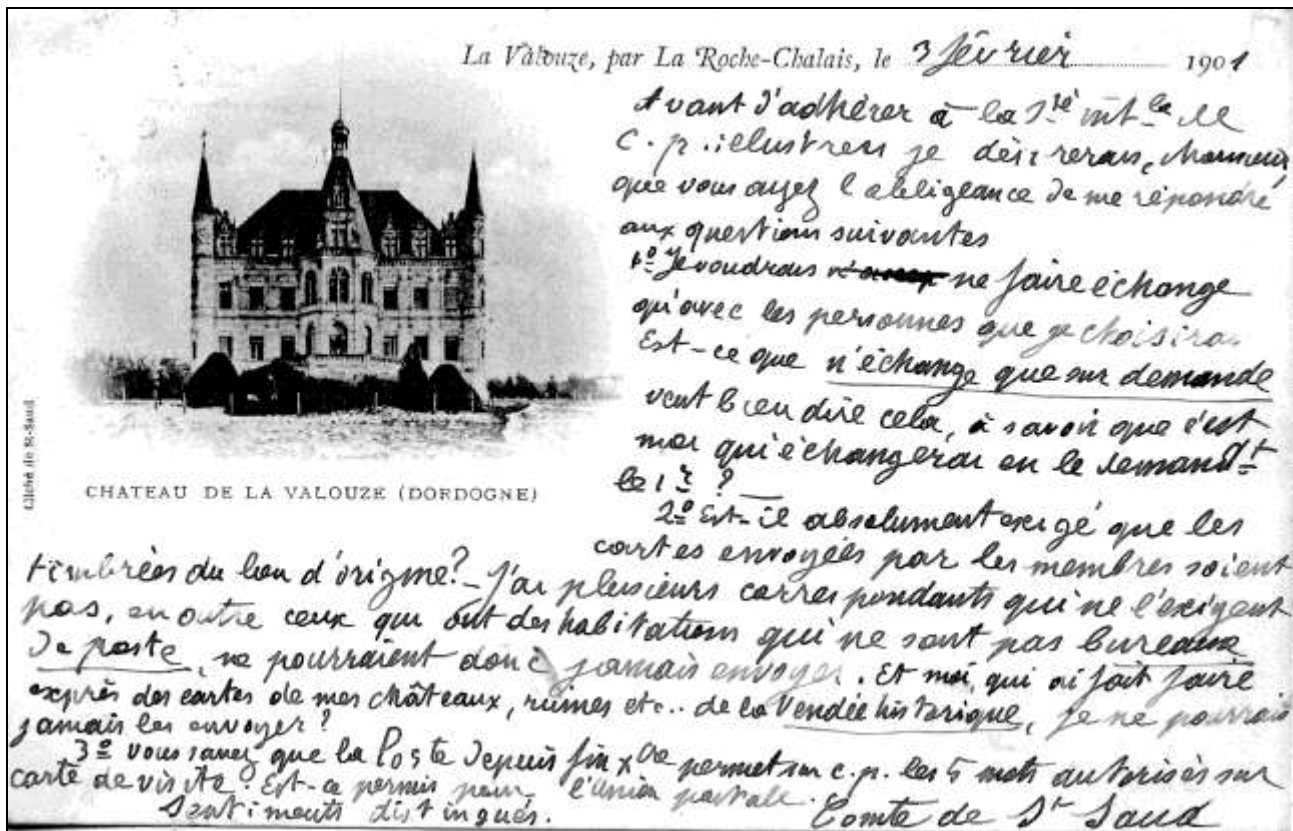 La Valouze, par La Roche-Chalais, le 3 février 1901
Avant d'adhérer à la Sté int-le de
C. p. illustrees je désirerais, Monsieur,
que vous ayez l'obligeance de me répondre
aux questions suivantes
1º Je voudrais ne faire échange
qu'avec les personnes que je choisirai
Est-ce que n'échange que sur demande
veut bien dire cela, à savoir que c'est
moi qui échangerai en le demandt
le 1r ?
2º Est-il absolument exigé que les
cartes envoyées par les membres soient
timbrées du lieu d'origine? - J'ai plusieurs correspondants qui ne l'exigent
pas, en outre ceux qui ont des habitations qui ne sont pas bureaux
de poste, ne pourraient donc jamais envoyer. Et moi, qui ai fait faire
exprès des cartes de mes châteaux, ruines etc.. de la Vendée historique, je ne pourrais
jamais les envoyer?
3º Vous savez que la Poste depuis fin Xbre permet sur c. p. les 5 mots autorisés sur
carte de visite. Est-ce permis pour l'Union postale.
Sentiments distingués.
Comte de St Saud
CHATEAU DE LA VALOUZE (DORDOGNE)
Cliché de St-Saud